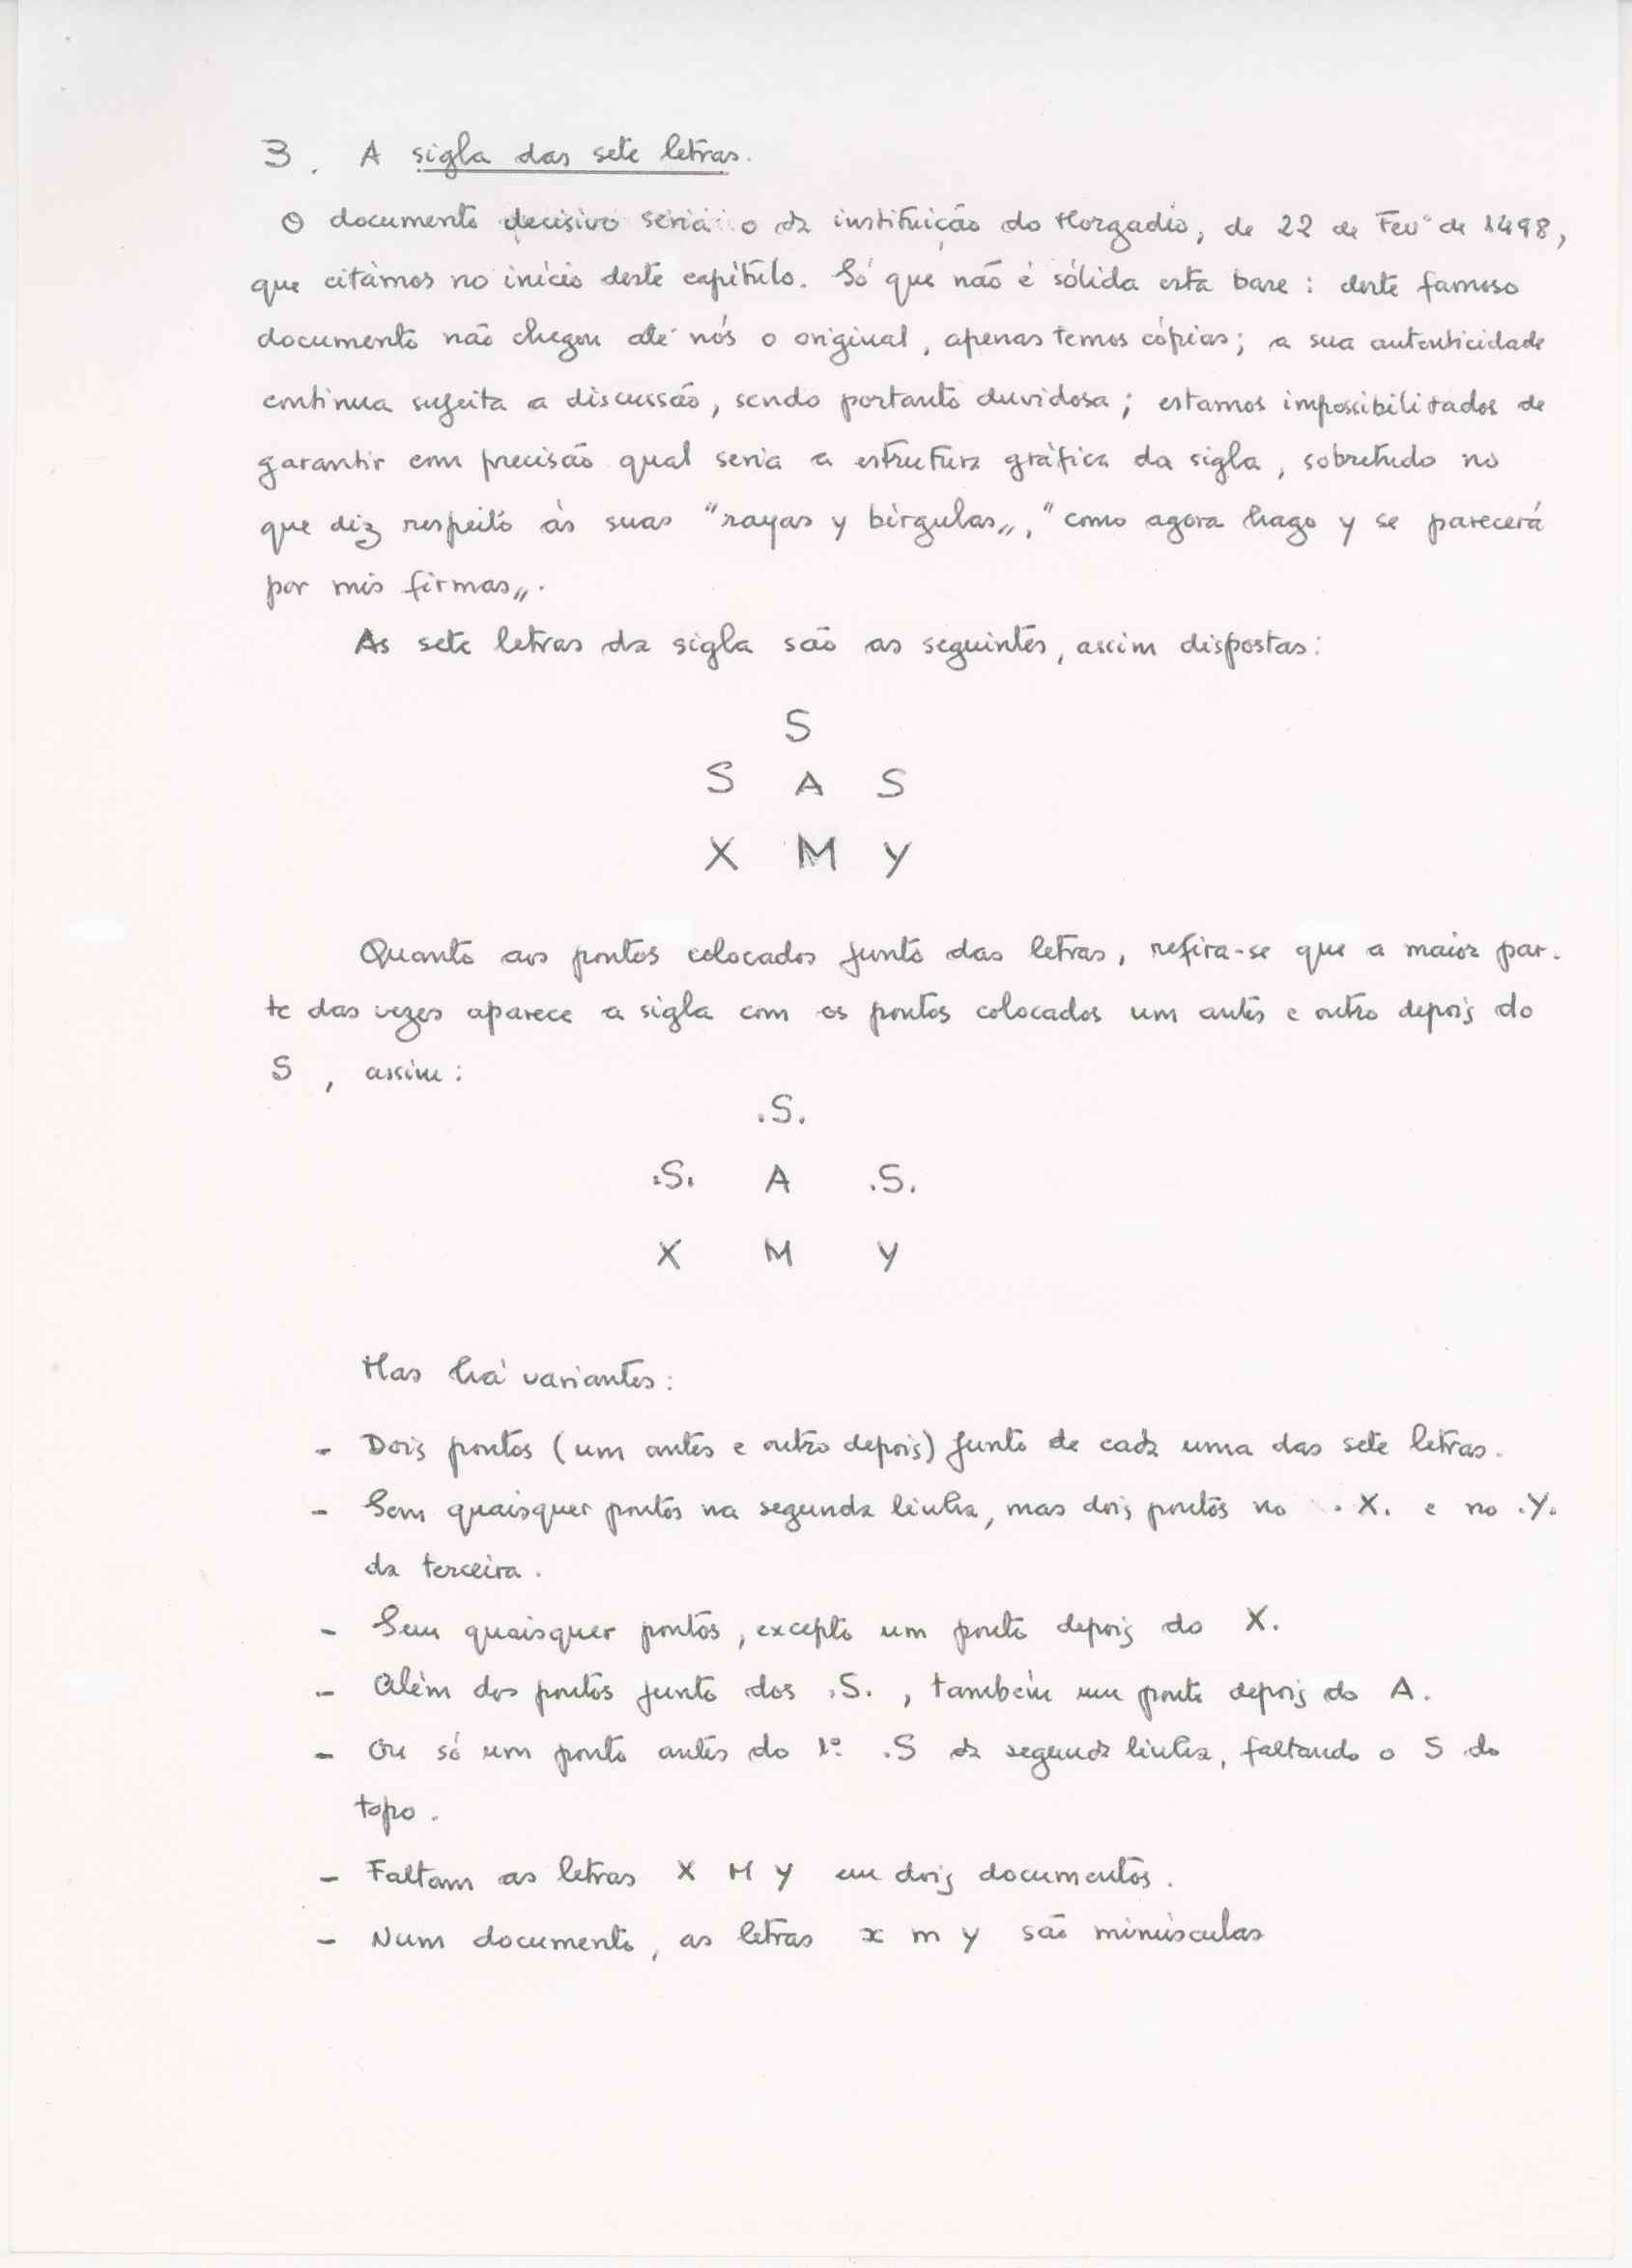 3. A sigla das sete letras.
O documento decisivo seria o da instituição do Morgadio, de 22 de Fevº de 1498,
que citámos no início deste capítulo. Só que não é sólida esta base: deste famoso
documento não chegou até nós o original, apenas temos cópias; a sua autenticidade
continua sujeita a discussão, sendo portanto duvidosa; estamos impossibilitados de
garantir com precisão qual seria a estrutura gráfica da sigla, sobretudo no
que diz respeito às suas "rayas y bírgulas„, "como agora hago y se parecerá
por mis firmas„.
As sete letras da sigla são as seguintes, assim dispostas:
S
S A S
X M Y
Quanto aos pontos colocados junto das letras, refira-se que a maior par-
te das vezes aparece a sigla com os pontos colocados um antes e outro depois do
S , assim:
.S.
.S. A .S.
X M Y
Mas há variantes:
- Dois pontos (um antes e outro depois) junto de cada uma das sete letras.
- Sem quaisquer pontos na segunda linha, mas dois pontos no .X. e no .Y.
da terceira.
- Sem quaisquer pontos, excepto um ponto depois do X.
- Além dos pontos junto dos .S. , também um ponto depois do A.
- Ou só um ponto antes do 1º .S da segunda linha, faltando o S do
topo.
- Faltam as letras X M Y em dois documentos.
- Num documento, as letras x m y são minúsculas